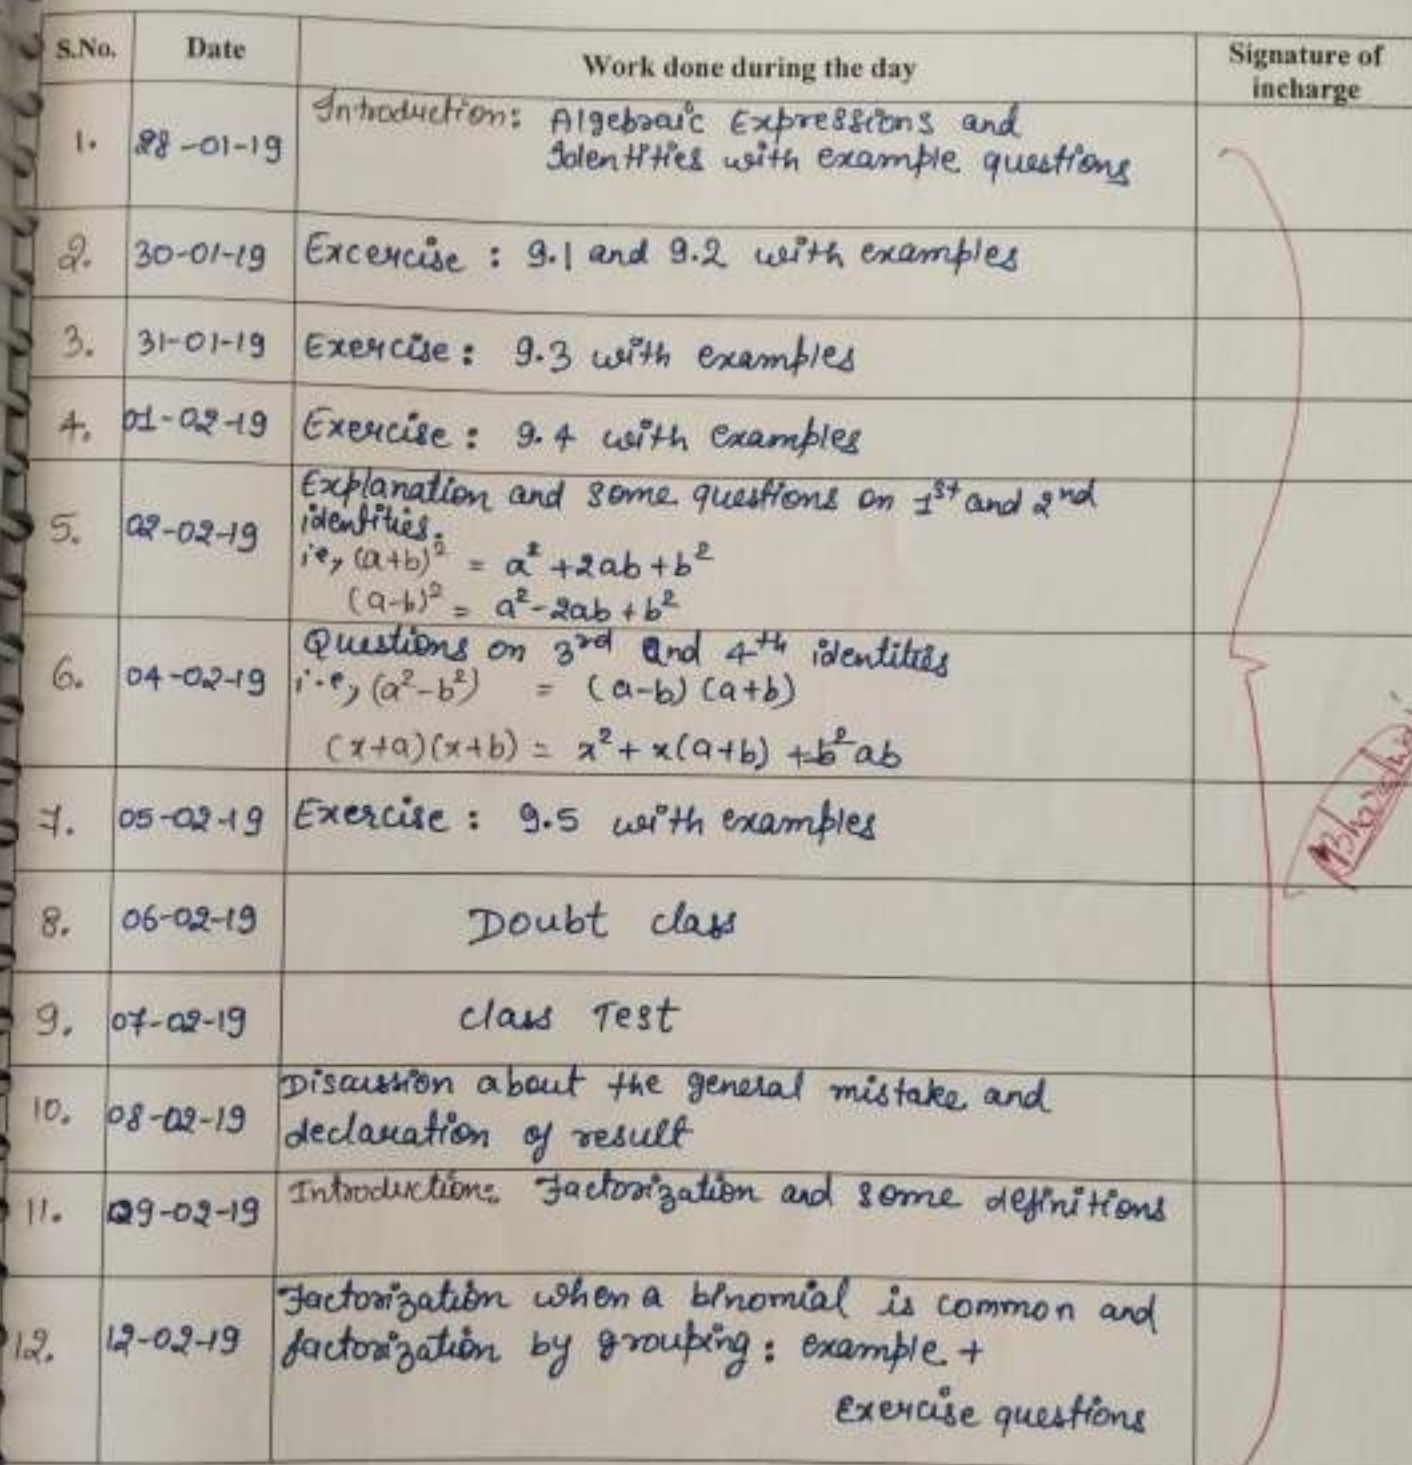 S.No. Date Work done during the day Signature of incharge
1. 28-01-19 Introduction: Algebraic Expressions and
Identities with example questions
2. 30-01-19 Excercise : 9.1 and 9.2 with examples
3. 31-01-19 Exercise : 9.3 with examples
4. 01-02-19 Exercise : 9.4 with examples
5. 02-02-19 Explanation and some questions on 1st and 2nd
identities.
i.e, (a+b)² = a² + 2ab + b²
(a-b)² = a² - 2ab + b²
6. 04-02-19 Questions on 3rd and 4th identities
i.e, (a²-b²) = (a-b) (a+b)
(x+a)(x+b) = x² + x(a+b) + ab
7. 05-02-19 Exercise : 9.5 with examples
8. 06-02-19 Doubt class
9. 07-02-19 class Test
10. 08-02-19 Discussion about the general mistake and
declaration of result
11. 09-02-19 Introduction: Factorization and some definitions
12. 12-02-19 Factorization when a binomial is common and
factorization by grouping : example +
Exercise questions